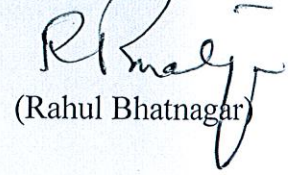 (Rahul Bhatnagar)